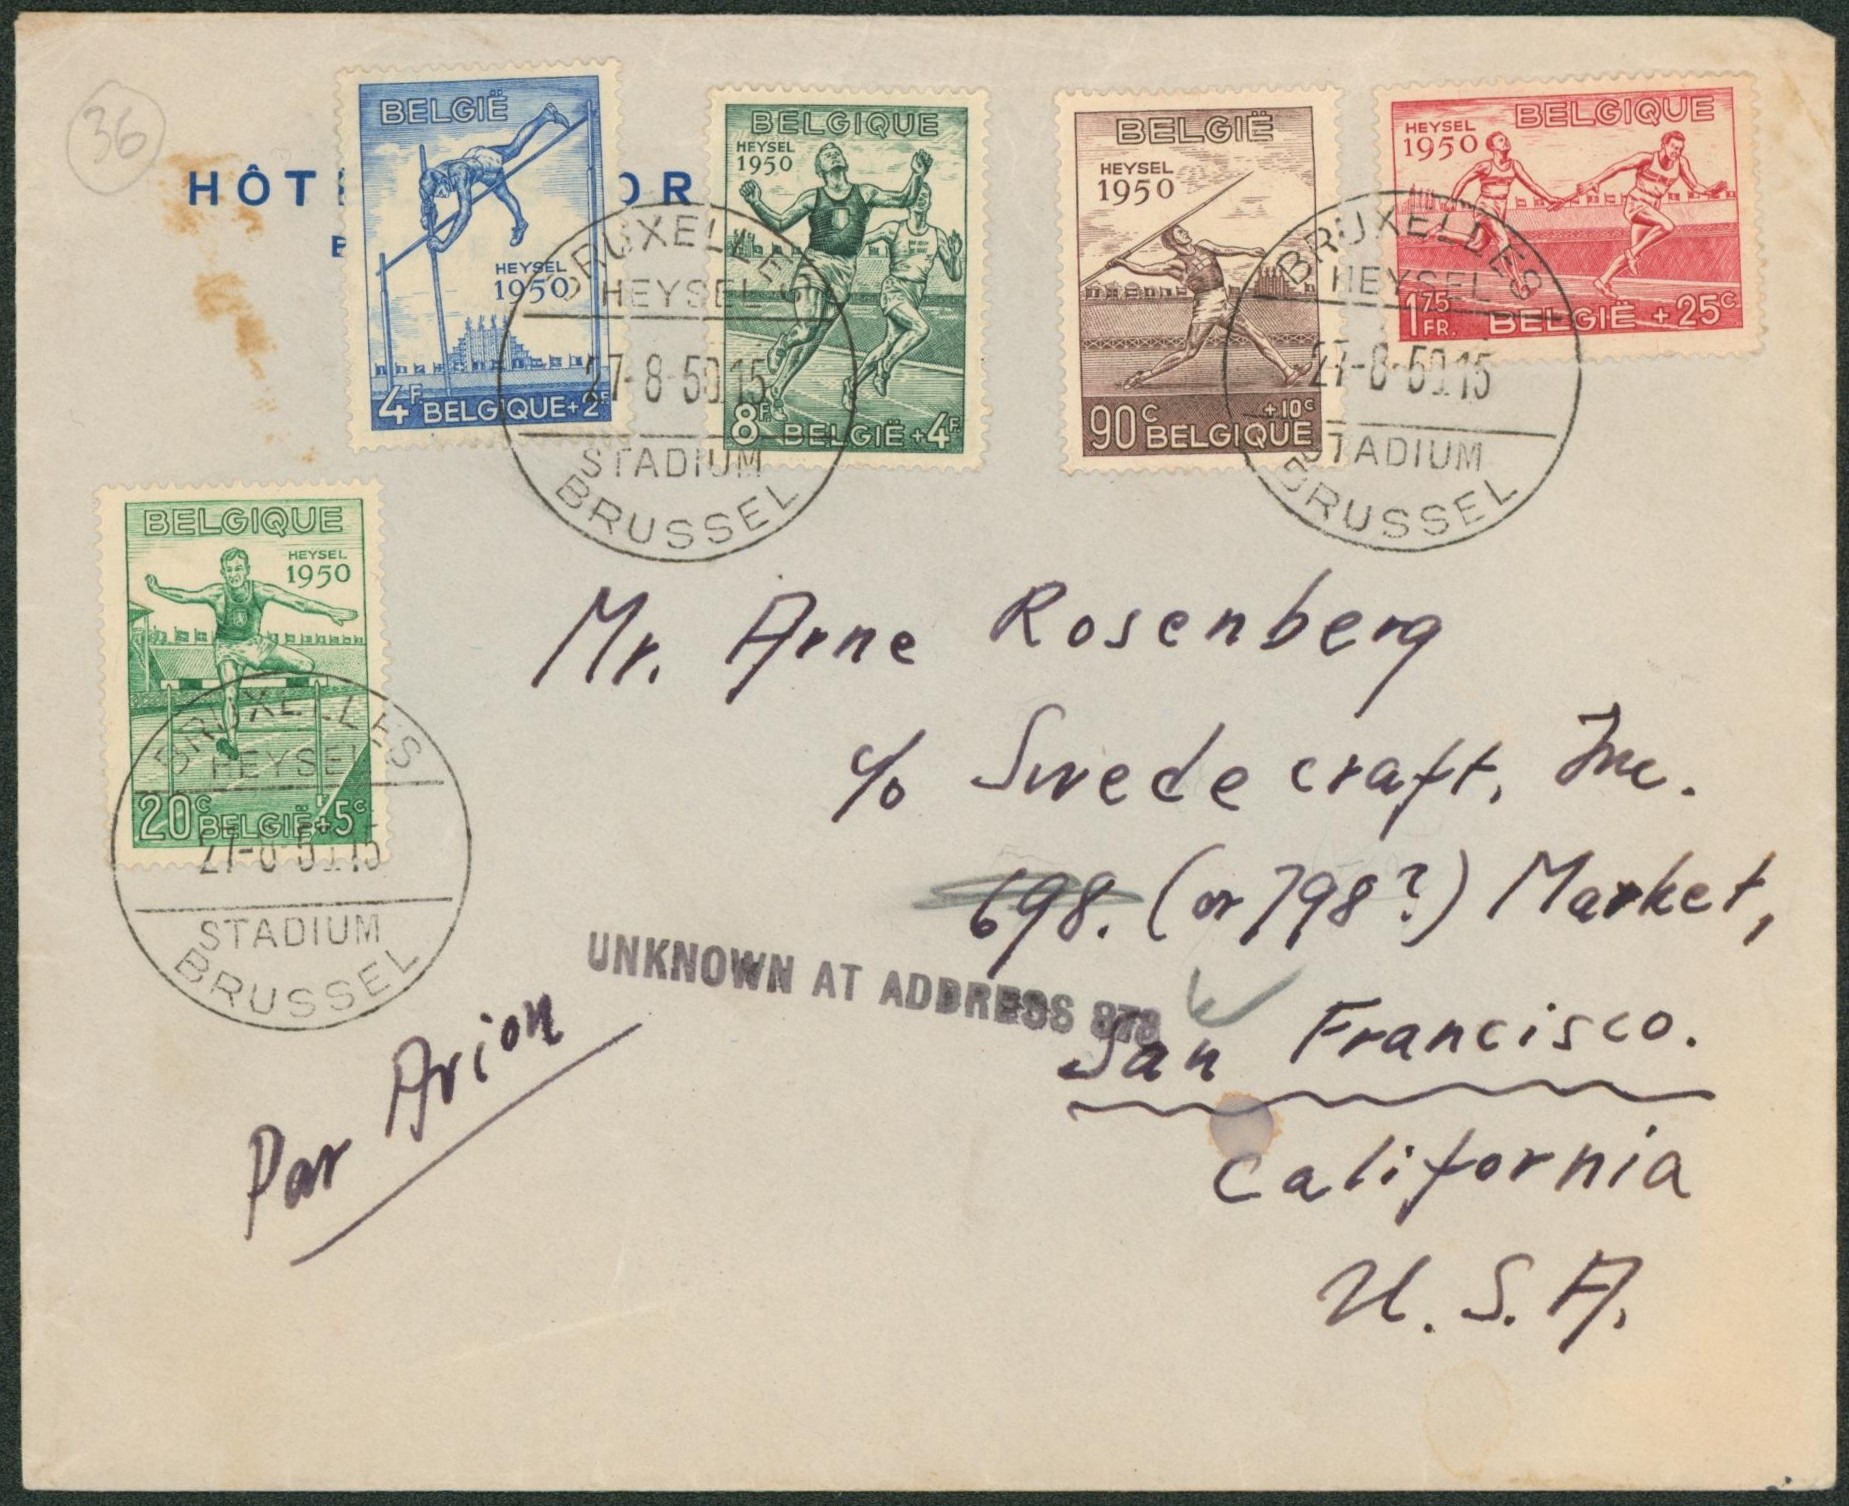 36
BELGIË
HEYSEL
1950
4F BELGIQUE+2F
BELGIQUE
HEYSEL
1950
8F BELGIË+4F
BELGIË
HEYSEL
1950
90c +10c
BELGIQUE
BELGIQUE
HEYSEL
1950
1.75 FR. BELGIË +25c
BRUXELLES
HEYSEL
27-8-50 15
STADIUM
BRUSSEL
BRUXELLES
HEYSEL
27-8-50 15
STADIUM
BRUSSEL
BELGIQUE
HEYSEL
1950
20c BELGIË+5c
BRUXELLES
HEYSEL
27-8-50 15
STADIUM
BRUSSEL
Mr. Arne Rosenberg
c/o Swedecraft, Inc.
698. (or 798?) Market,
UNKNOWN AT ADDRESS
San Francisco.
California
U.S.A.
Par Avion